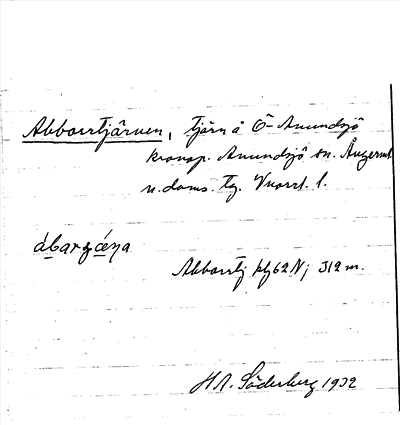 Abborrtjärnen, tjärn å Ö-Anundsjö
kronop. Anundsjö sn. Ångerml.
n. doms. tg. l.
Abborrtj kbl 62 N; 312 m.
H A. Söderberg 1932